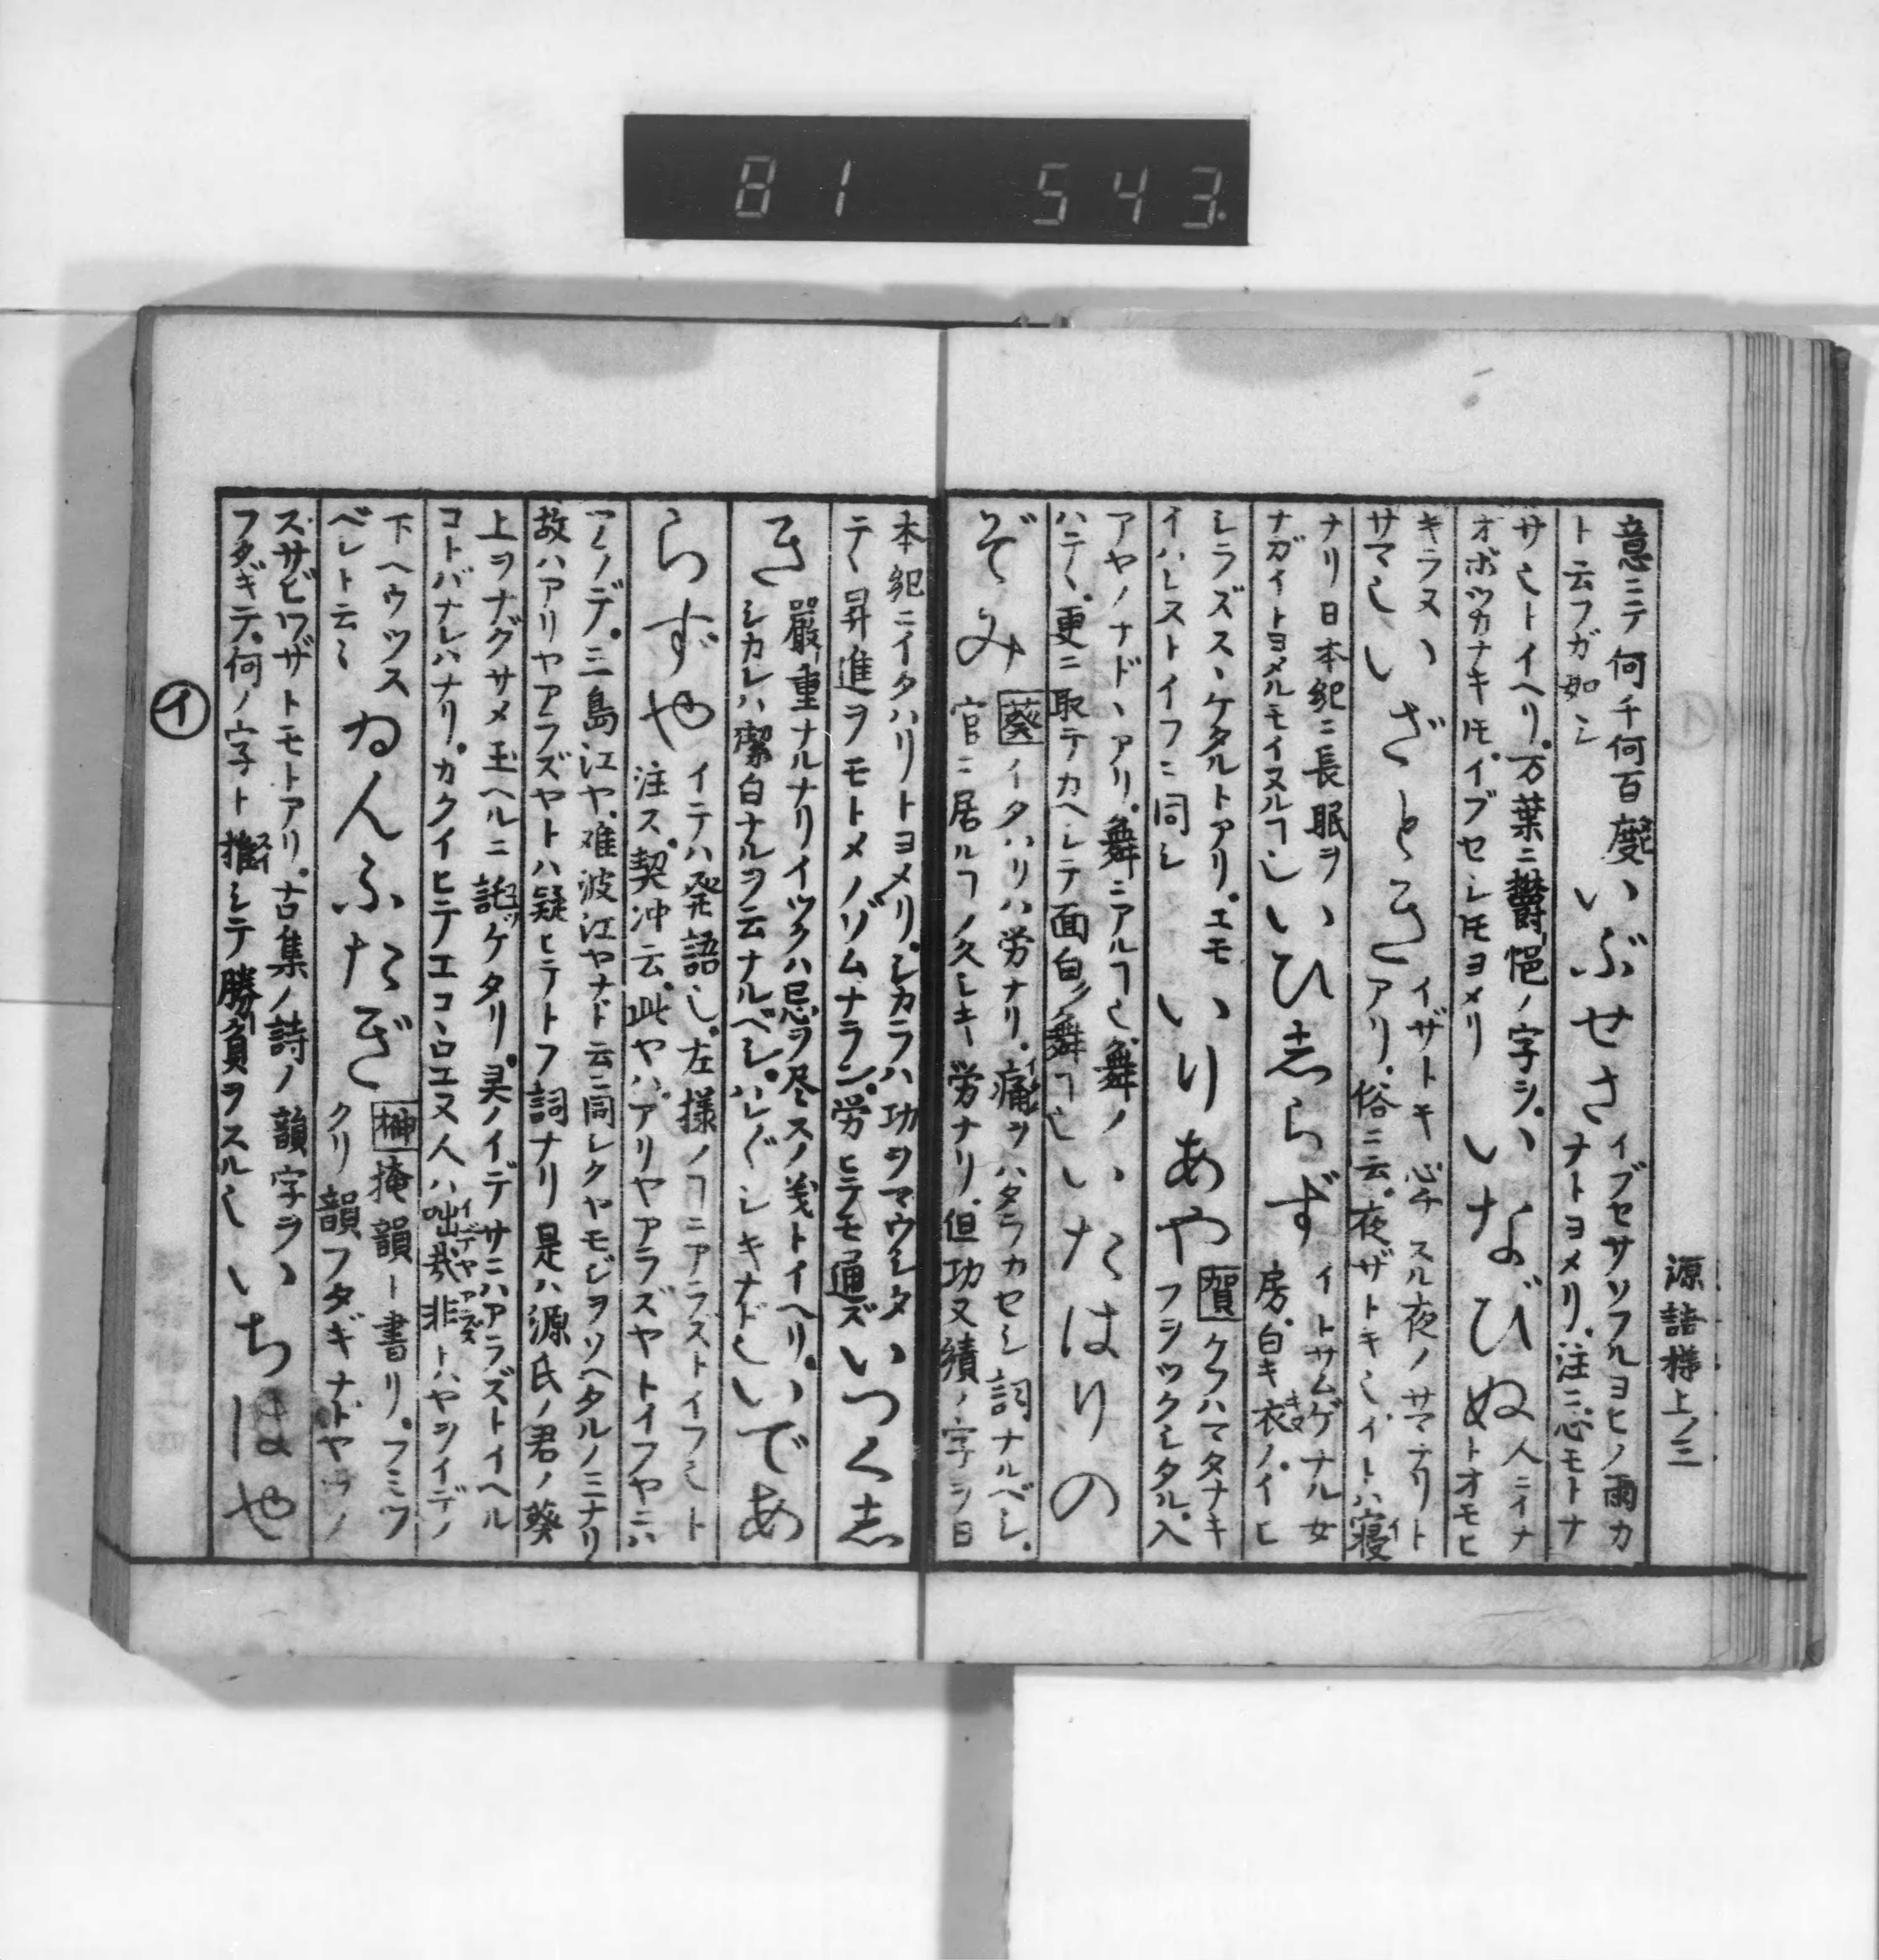 81 543
源語梯上ノ三
意ニテ何千何百度
ト云フガ如シ
いぶせさ
イブセサソフルヨヒノ雨カ
ナトヨメリ注ニ心モトナ
サ也トイヘリ万葉ニ鬱悒ノ字シ
オボツカナキ𪜈イブセシ𪜈ヨメリ
いなびぬ
人ニイナ
トオモヒ
キラヌ
サマ也
いざとき
イザトキ心チスル夜ノサマナリト
アリ俗ニ云夜ザトキ也イトハ寝
ナリ日本紀ニ長眠ヲ
ナガイトヨメルモイヌルヿ也
いひ志らず
イトサムゲナル女
房白キ衣ノイヒ
シラズスヽケタルトアリエモ
イハレストイフニ同シ
いりあや
賀 ケフハマタナキ
フシツクシタル入
アヤノナドヽアリ舞ニアルヿ也舞ノ
ハテ〳〵更ニ取テカヘシテ面白ク舞ヿ也
いたはりの
ぞみ
葵 イタハリハ労ナリ痛ヲハタラカセシ詞ナルベシ
官ニ居ルヿノ久シキ労ナリ但功又績ノ字ヲ日
本紀ニイタハリトヨメリシカラハ功ヲマウシタ
テ〳〵昇進ヲモトメノゾムナラン労ヒテモ通ズ
いつく志
き
嚴重ナルナリイツクハ忌ヲ尽スノ義トイヘリ
シカレハ潔白ナルヲ云ナルベシハレ〴〵シキナド也
いであ
らずや
イテハ発語也左様ノヿニアラズトイフ也ト
注ス契沖云此ヤハアリヤアラズヤトイフヤニハ
アノデ三島江ヤ难波江ヤナド云ニ同シクヤモジヲソヘタルノミナリ
故ハアリヤアラズヤトハ疑ヒテトフ詞ナリ是ハ源氏ノ君ノ葵
上ヲナグサメ玉ヘルニ託ケタリ灵ノイデサニハアラズトイヘル
コトバナレハナリカクイヒテエコヽロエヌ人ハ咄哉非トハヤヲイデノ
下ヘウツス
ベシト云〻
ゐんふたぎ
榊 掩韻ト書リフミツ
クリ韻フタギナドヤウノ
スサビワザトモトアリ古集ノ詩ノ韻字ヲ
フタギテ何ノ字ト推シテ勝負ヲスル也
いちはや
イ